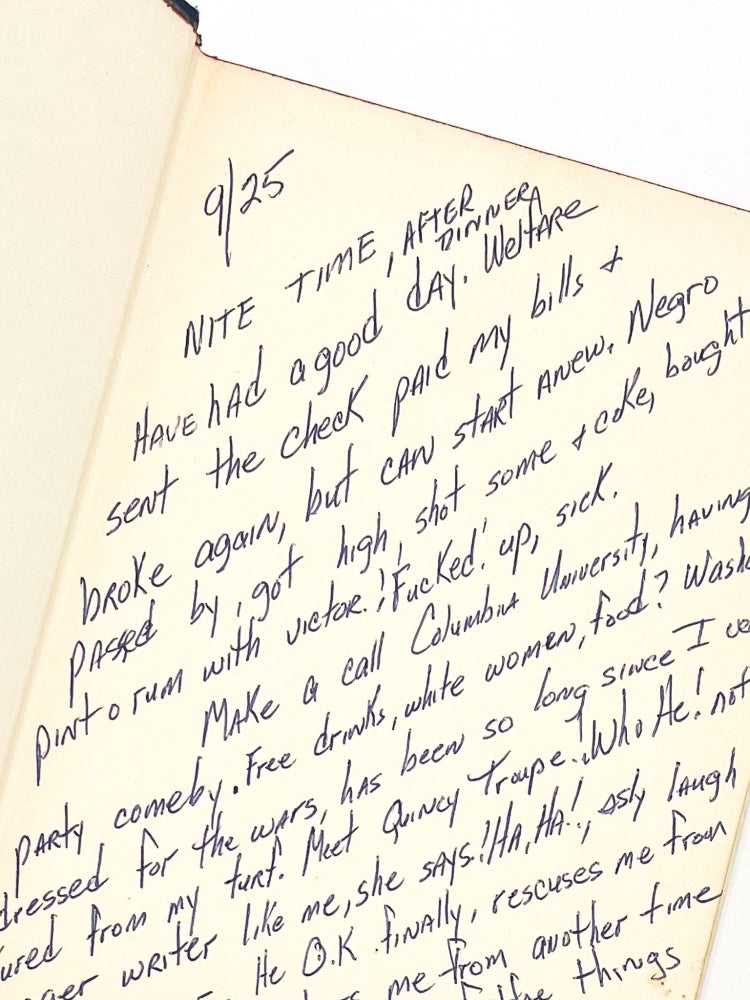 9/25
NITE TIME, AFTER DINNER
HAVE had a good day. Welfare
sent the check paid my bills +
broke again, but can start anew. Negro
passed by, got high, shot some + coke, bought
pint o rum with victor.! Fucked! up, sick.
Make a call Columbia University, having
party comeby. Free drinks, white women, food?
dressed for the wars, has been so long since I
ured from my turf. Meet Quincy Troupe.! Who He! not
writer like me, she says! HA, HA!, a sly laugh
He O.K. finally, rescues me from
me from another time
things